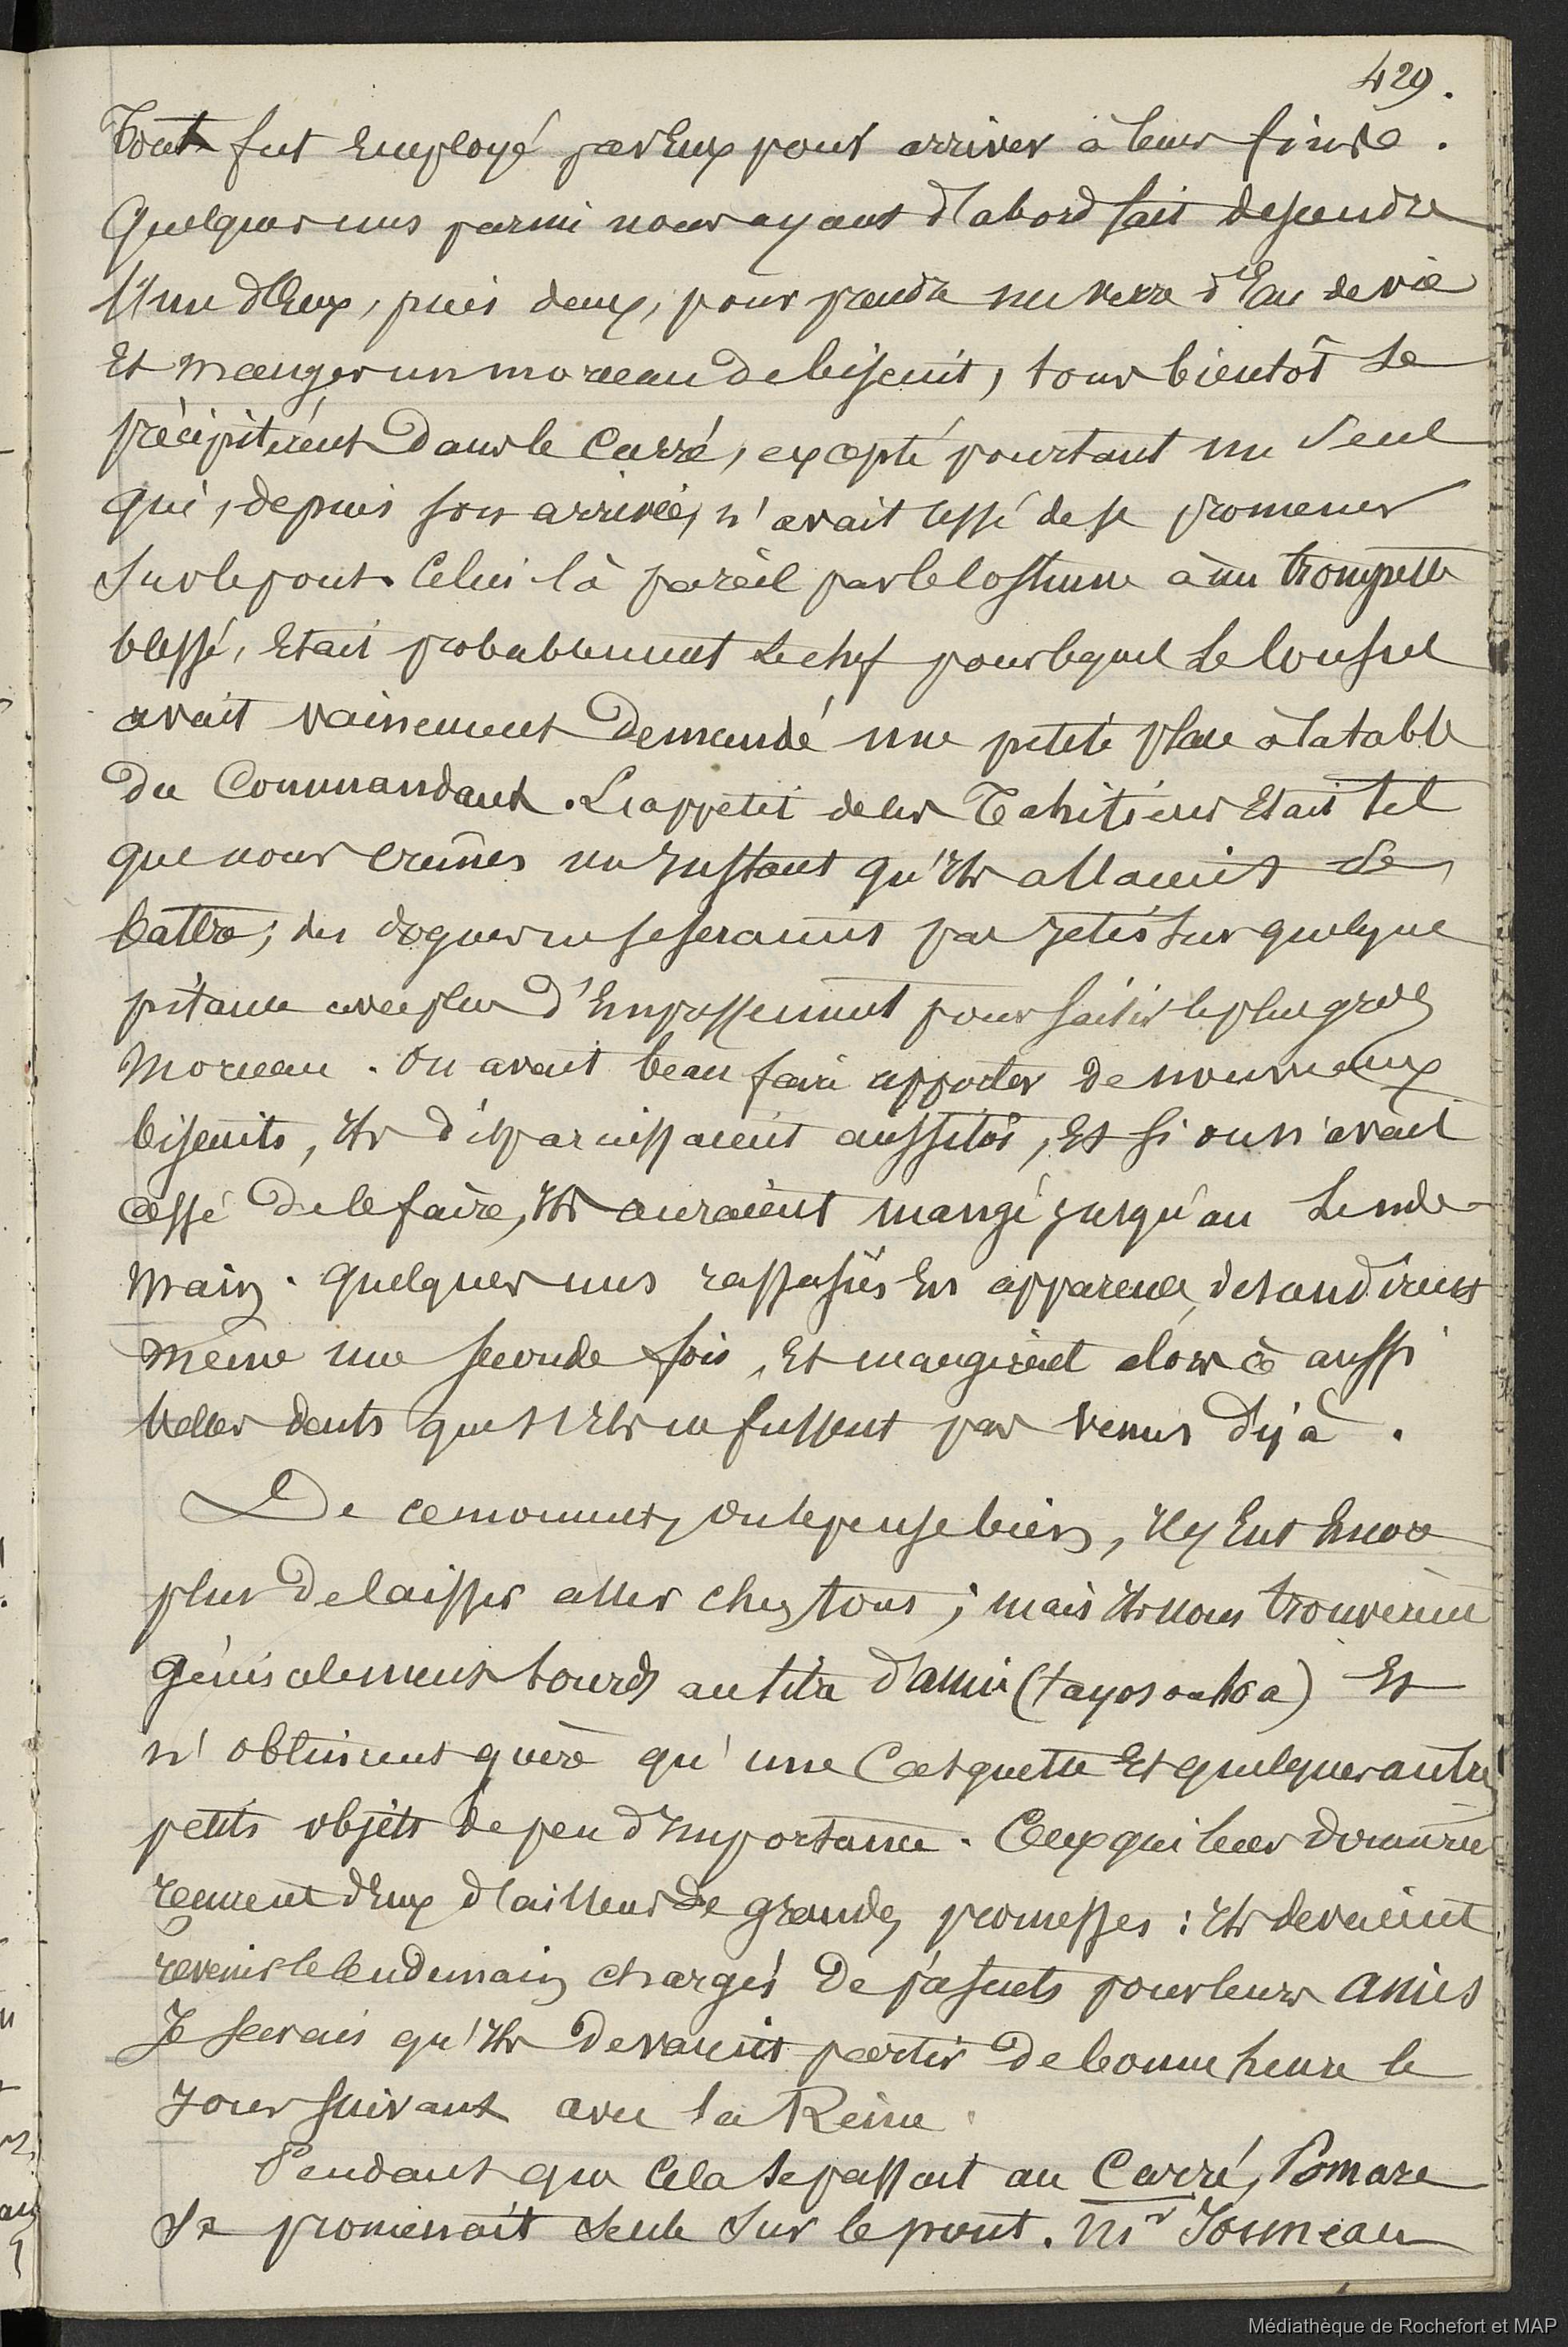 429.
Tout fut Employé par Eux pour arriver à leurs fins.
Quelques uns parmi nous ayant d'abord fait descendre
l'un d'Eux, puis deux, pour prendre un verre d'Eau de vie
Et manger un morceau de biscuit, tous bientôt se
précipitèrent Dans le Carré, excepté pourtant un seul
qui, depuis son arrivée, n'avait cessé de se promener
sur le pont. Celui là pareil par le costume à un trompette
blessé, Etait probablement le chef pour lequel le Consul
avait vainement Demandé une petite place à la table
Du Commandant. L'appétit de ces Tahitiens Etait tel
que nous crûmes un Instant qu'Ils allaient se
battre; des dogues ne se seraient pas jetés sur quelque
pitance avec plus d'Empressement pour saisir le plus gros
Morceau. On avait beau faire apporter de nouveaux
biscuits, Ils disparaissaient aussitôt, Et si on n'avait
cessé De le faire, Ils auraient mangé jusqu'au lende-
main. Quelques uns rassasiés En apparence, descendirent
même une seconde fois, Et mangèrent alors à aussi
belles dents que s'Ils ne fussent pas venus Déjà.
De ce moment, on le pense bien, Il y Eut Encore
plus De laisser aller chez tous; mais Ils nous trouvèrent
Généralement sourds au titre d'ami (tayo) Et
n'obtinrent guère qu'une Casquette Et quelques autres
petits objets de peu d'Importance. Ceux qui leur donnèrent
reçurent d'Eux d'ailleurs De grandes promesses : Ils devaient
revenir le lendemain chargés De présents pour leurs amis
Je savais qu'Ils Devaient partir De bonne heure le
Jour suivant avec la Reine.
Pendant que Cela se passait au Carré, Pomare
se promenait seule sur le pont. Mr